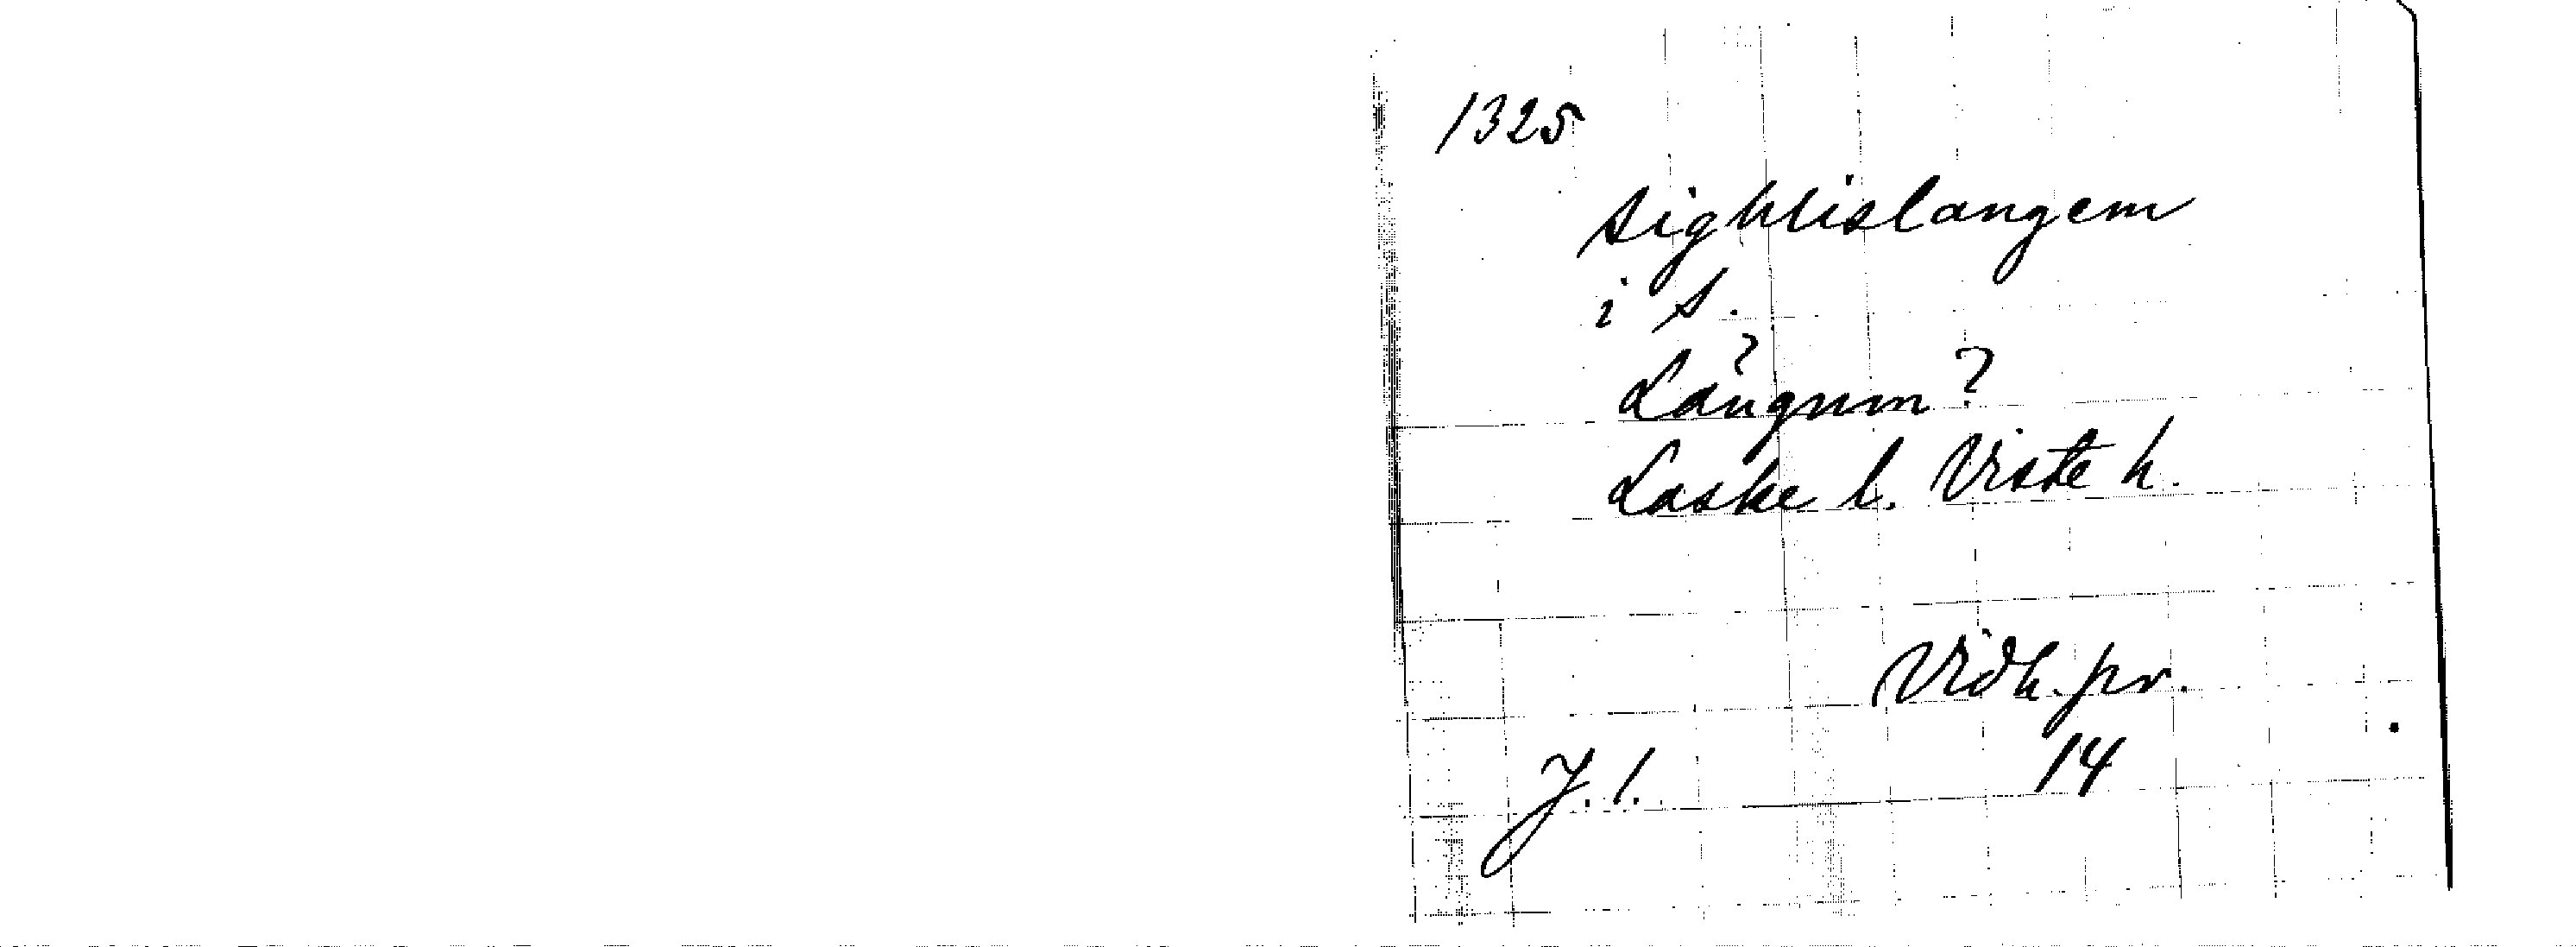 1325
sighlislangem
i s.
Långum?
Laske l. Viste h.
Vidh. pr.
14
J. 1.